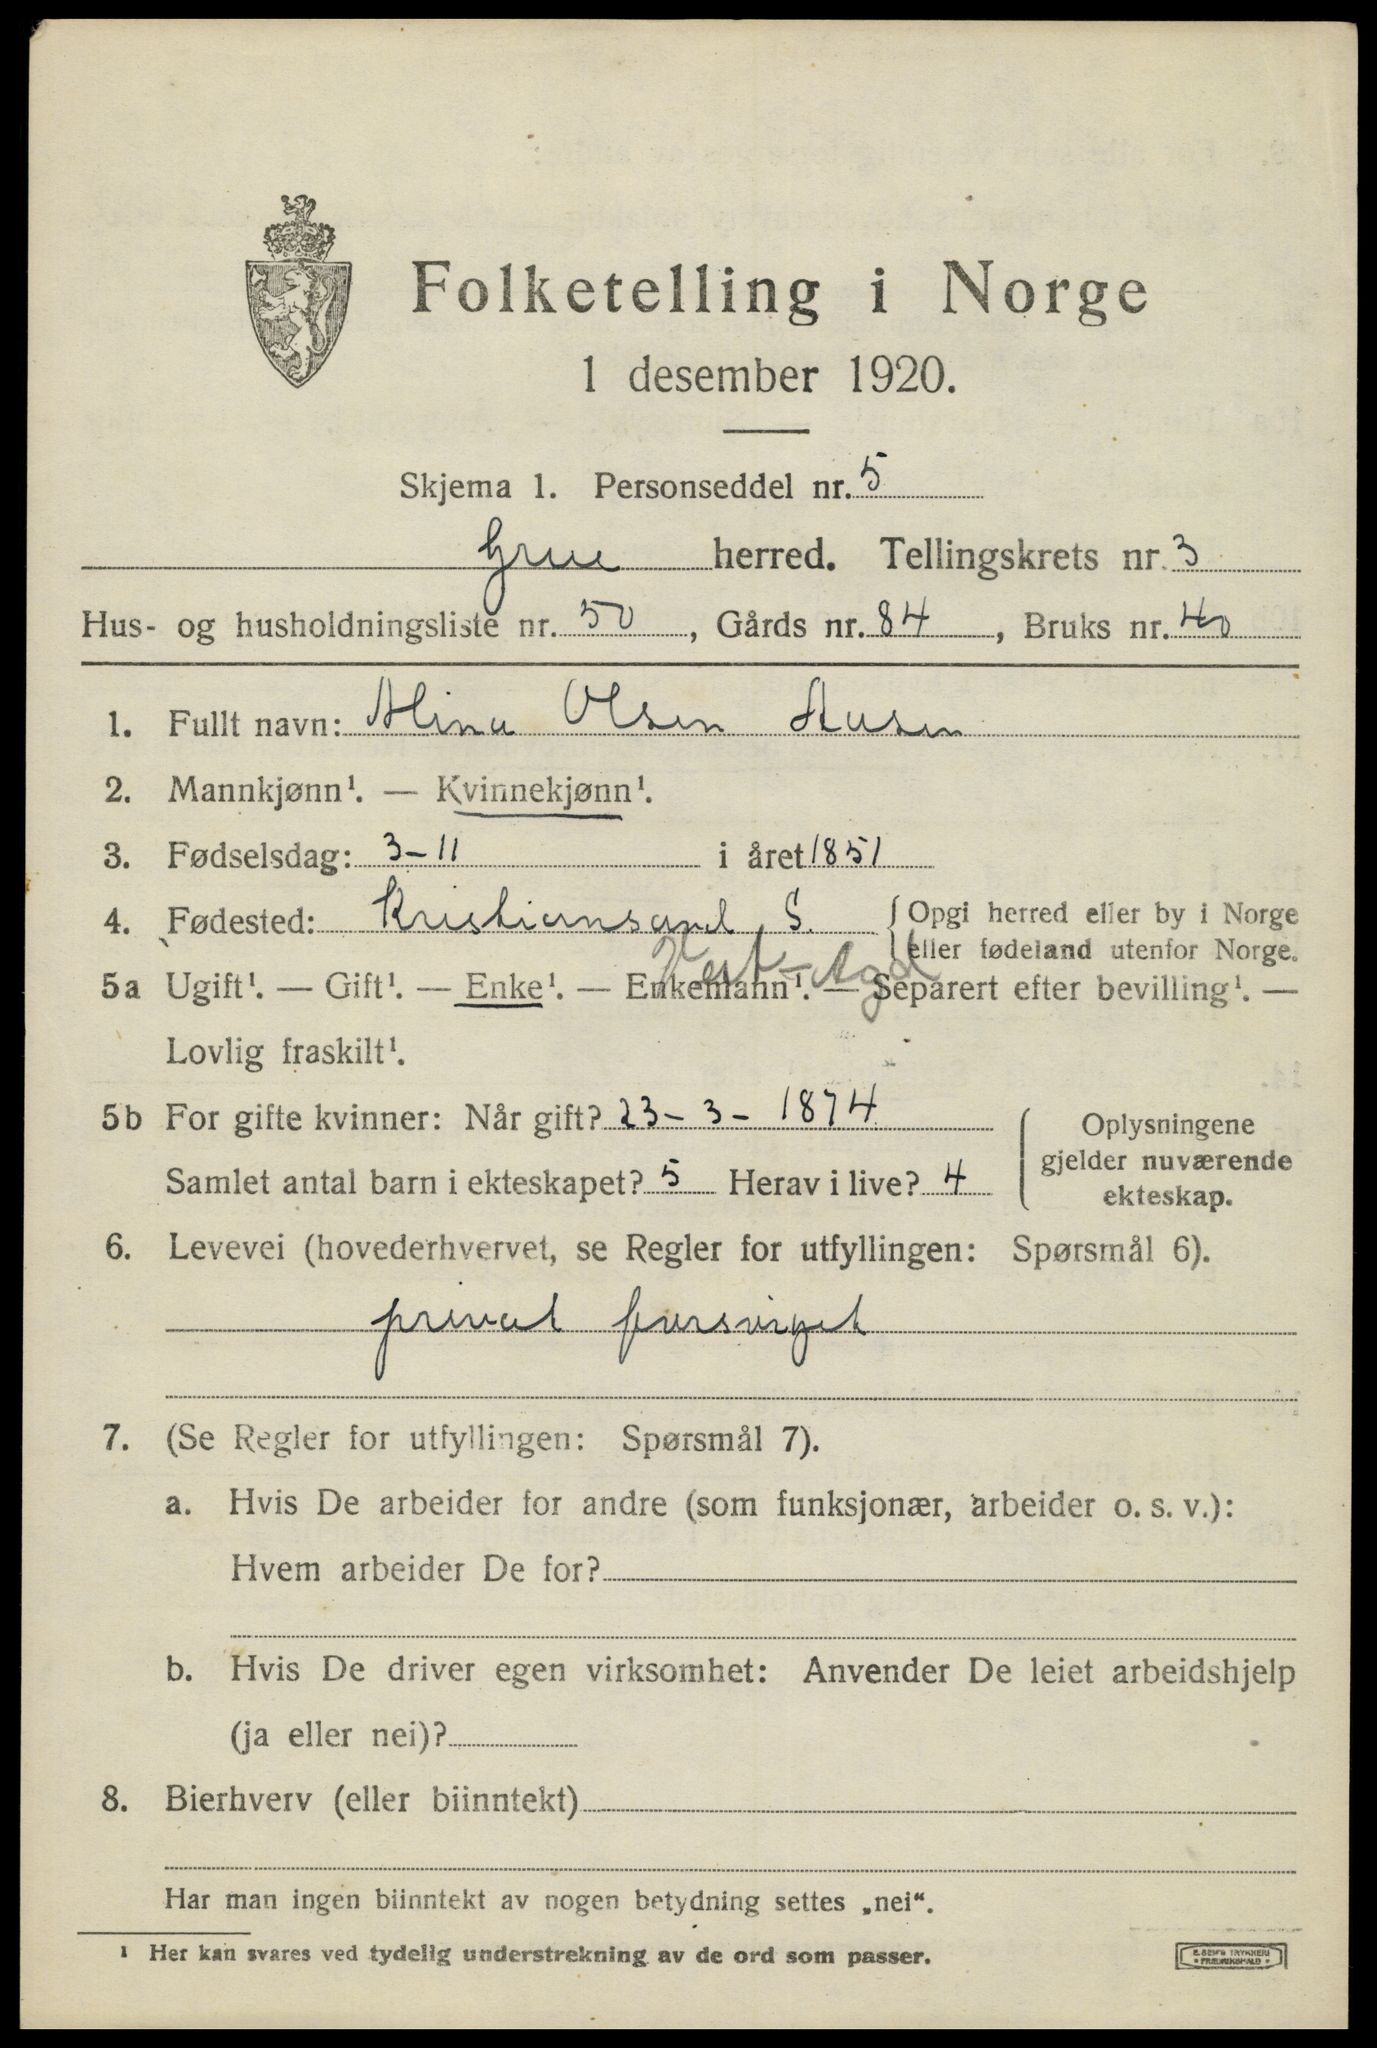 Folketelling i Norge
1 desember 1920.
Skjema 1. Personseddel nr. 5
Grue herred. Tellingskrets nr. 3
Hus- og husholdningsliste nr. 50, Gårds nr. 84, Bruks nr. 40
1. Fullt navn: Alina Olsen Aasen
2. Mannkjønn¹. — Kvinnekjønn¹.
3. Fødselsdag: 3-11 i året 1851
4. Fødested: Kristiansand S. { Opgi herred eller by i Norge
eller fødeland utenfor Norge.
Vest-Agd
5a Ugift¹. — Gift¹. — Enke¹. — Enkemann¹. — Separert efter bevilling¹. —
Lovlig fraskilt¹.
5b For gifte kvinner: Når gift? 23-3-1874
Samlet antal barn i ekteskapet? 5 Herav i live? 4
Oplysningene
gjelder nuværende
ekteskap.
6. Levevei (hovederhvervet, se Regler for utfyllingen: Spørsmål 6).
privat forsørget
7. (Se Regler for utfyllingen: Spørsmål 7).
a. Hvis De arbeider for andre (som funksjonær, arbeider o. s. v.):
Hvem arbeider De for?
b. Hvis De driver egen virksomhet: Anvender De leiet arbeidshjelp
(ja eller nei)?
8. Bierhverv (eller biinntekt)
Har man ingen biinntekt av nogen betydning settes „nei“.
¹ Her kan svares ved tydelig understrekning av de ord som passer.
E. SEMS TRYKKERI
FREDRIKSHALD